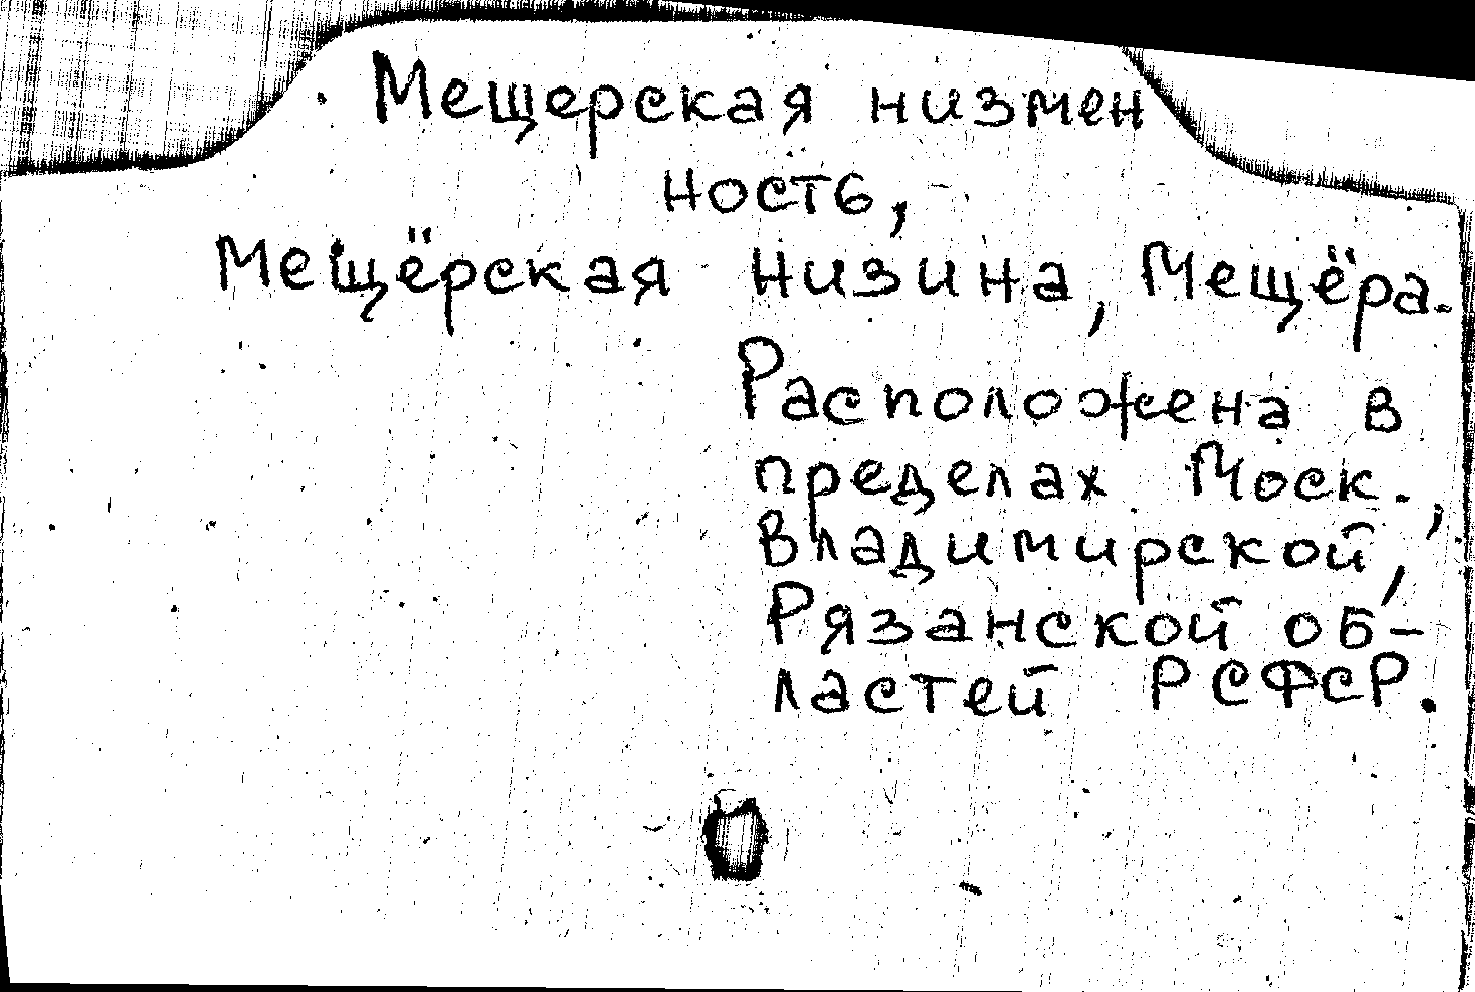 Мещерская низмен
ность,
Мещёрская низина, Мещёра.
Расположена в
пределах Моск.,
Владимирской,
Рязанской об-
ластей РСФСР.